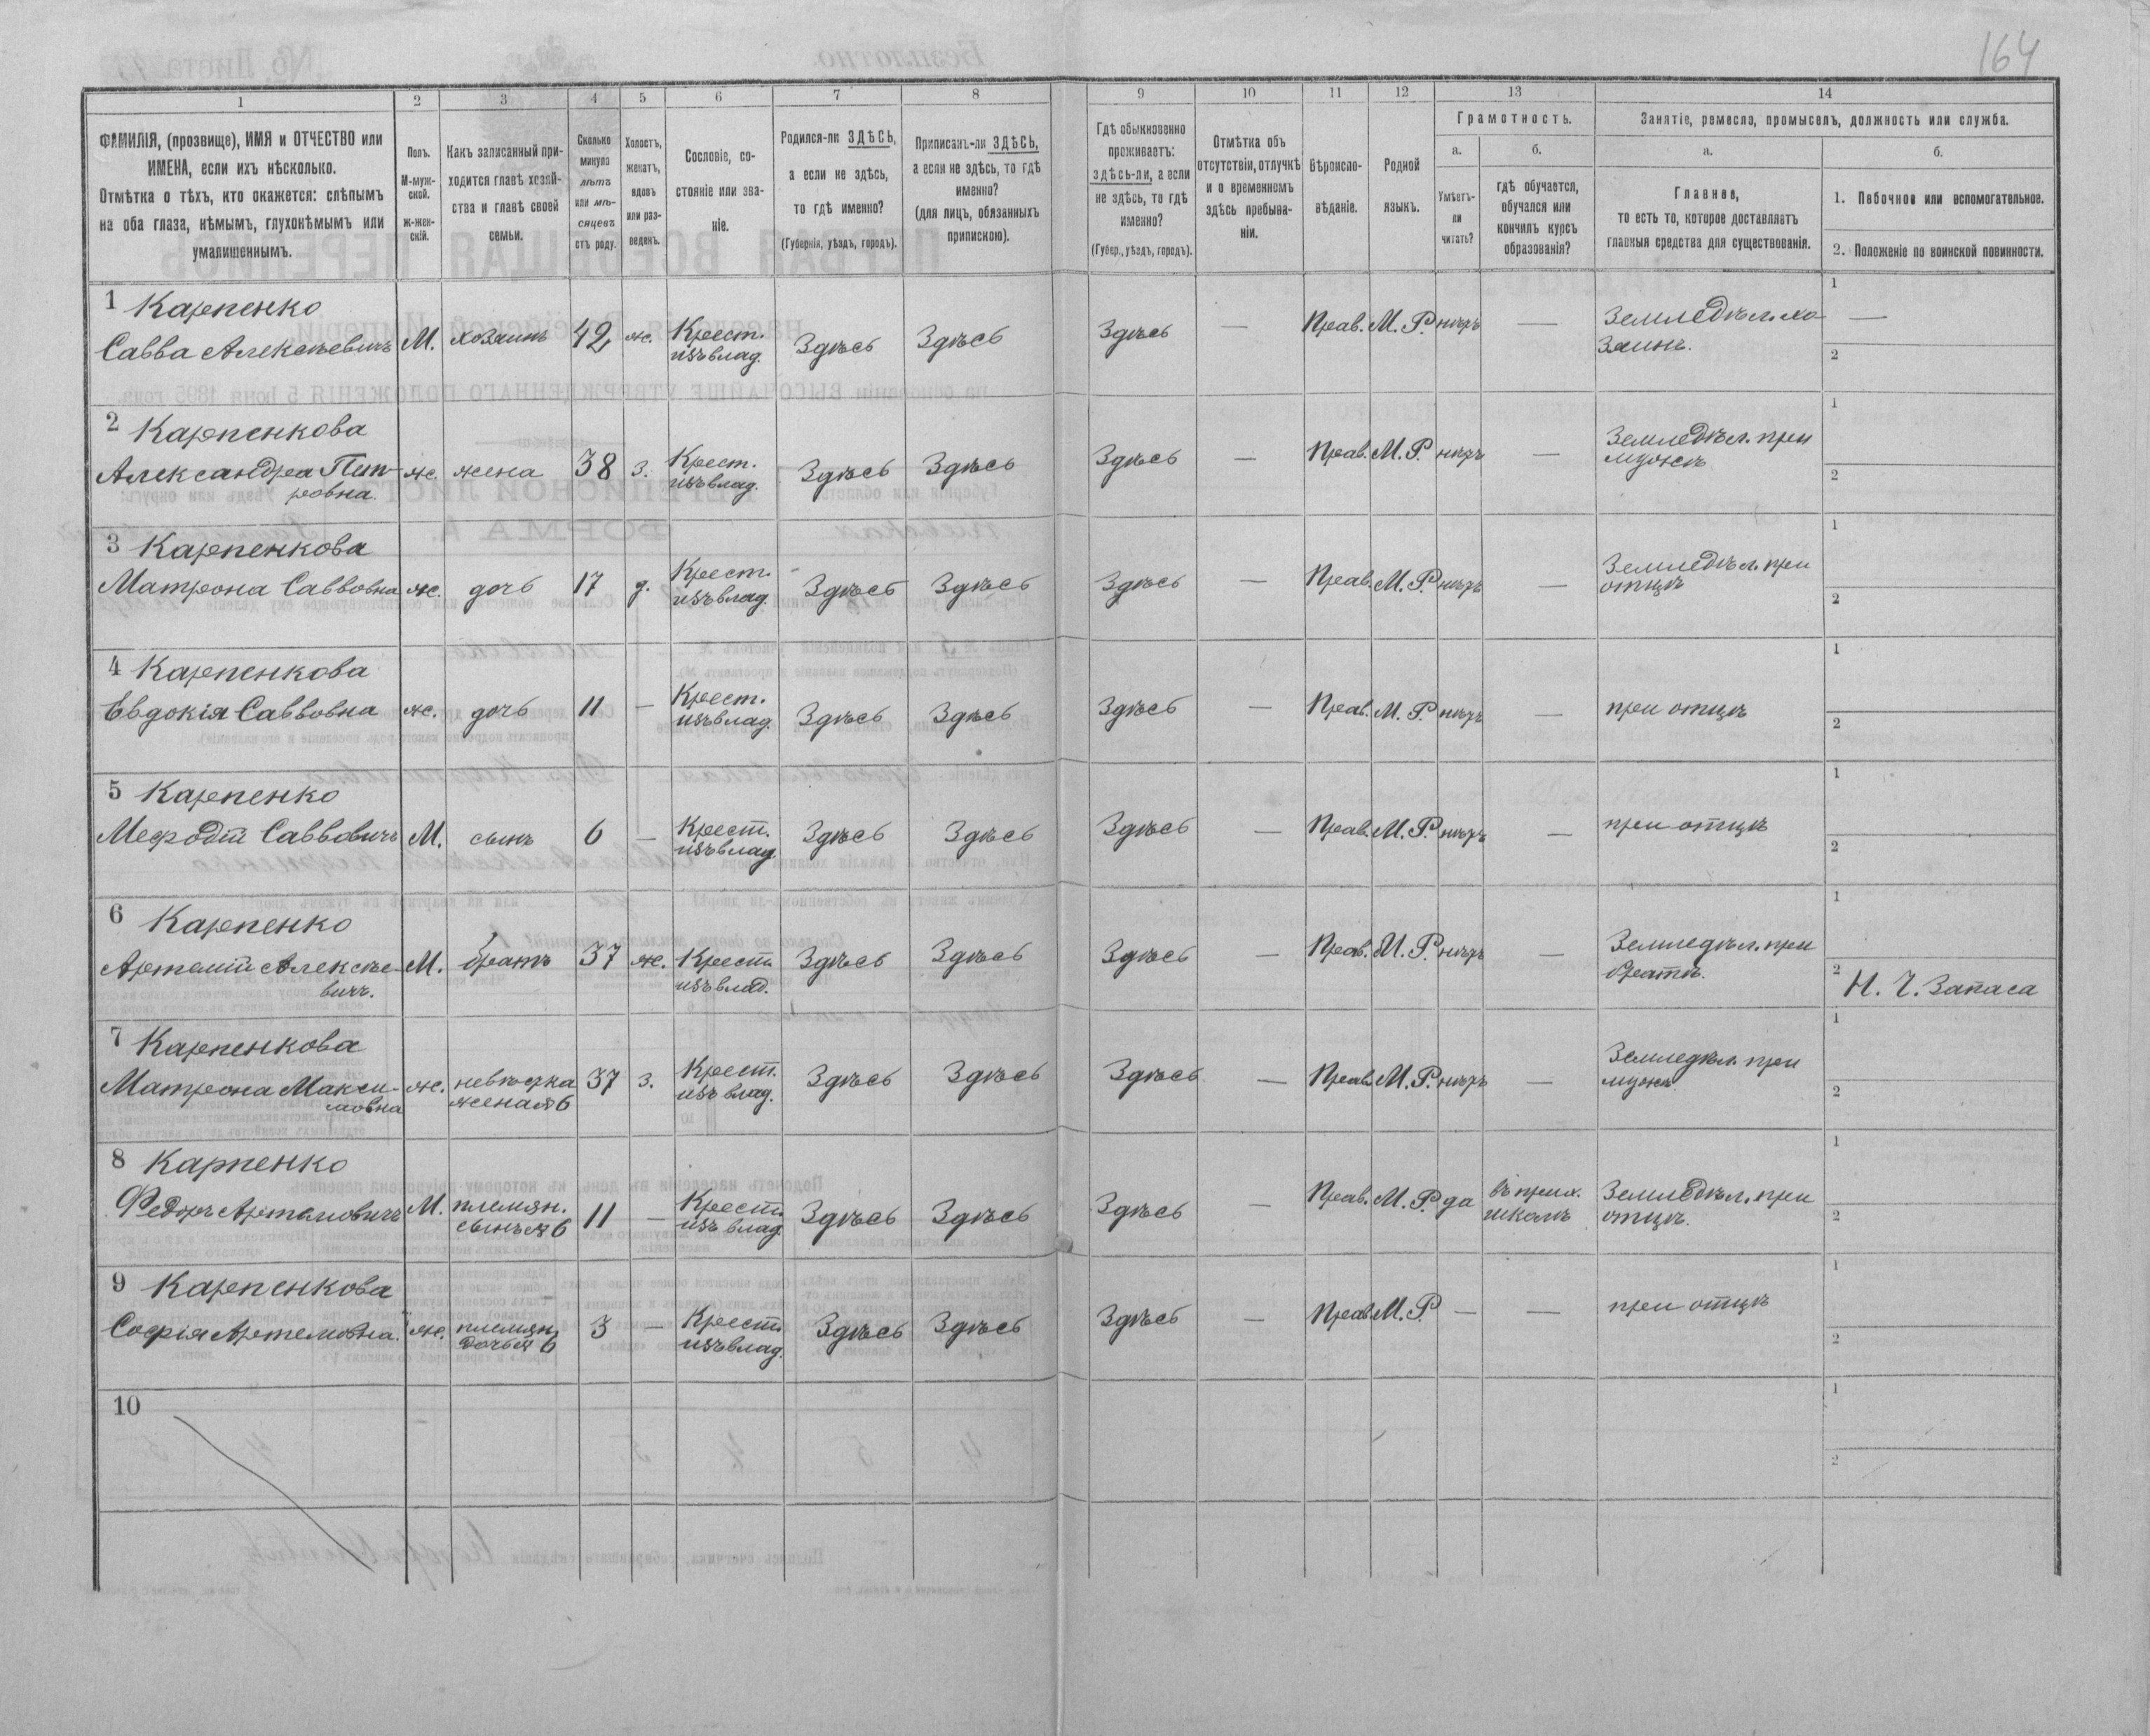 164
1
2
3
4
5
6
7
8
9
10
11
12
13
14
ФАМИЛІЯ, (прозвище), ИМЯ и ОТЧЕСТВО или
ИМЕНА, если ихъ нѣсколько.
Отмѣтка о тѣхъ, кто окажется: слѣпымъ
на оба глаза, нѣмымъ, глухонѣмымъ или
умалишеннымъ.
Полъ.
М-муж-
ской.
ж-жен-
скій.
Какъ записанный при-
ходится главѣ хозяй-
ства и главѣ своей
семьи.
Сколько
минуло
лѣтъ
или мѣ-
сяцевъ
отъ роду.
Холостъ,
женатъ,
вдовъ
или раз-
веденъ.
Сословіе, со-
стояніе или зва-
ніе.
Родился-ли ЗДѢСЬ,
а если не здѣсь,
то гдѣ именно?
(Губернія, уѣздъ, городъ).
Приписанъ-ли ЗДѢСЬ,
а если не здѣсь, то гдѣ
именно?
(для лицъ, обязанныхъ
припискою).
Гдѣ обыкновенно
проживаетъ:
здѣсь-ли, а если
не здѣсь, то гдѣ
именно?
(Губер., уѣздъ, городъ).
Отмѣтка объ
отсутствіи, отлучкѣ
и о временномъ
здѣсь пребыва-
ніи.
Вѣроиспо-
вѣданіе.
Родной
языкъ.
Грамотность.
а.
Умѣетъ-
ли
читать?
б.
гдѣ обучается,
обучался или
кончилъ курсъ
образованія?
Занятіе, ремесло, промыселъ, должность или служба.
а.
Главное,
то есть то, которое доставляетъ
главныя средства для существованія.
б.
1. Побочное или вспомогательное.
2. Положеніе по воинской повинности.
1 Карпенко
Савва Алексѣевичъ М. хозяинъ 42 ж. Крест. изъ влад. Здѣсь Здѣсь Здѣсь — Прав. М. Р. нѣтъ — Земледѣл. хо-
зяинъ. 1 —
2
2 Карпенкова
Александра Пет-
ровна ж. жена 38 з. Крест. изъ влад. Здѣсь Здѣсь Здѣсь — Прав. М. Р. нѣтъ — Земледѣл. при
мужѣ 1
2
3 Карпенкова
Матрона Саввовна ж. дочь 17 д. Крест. изъ влад. Здѣсь Здѣсь Здѣсь — Прав. М. Р. нѣтъ — Земледѣл. при
отцѣ 1
2
4 Карпенкова
Евдокія Саввовна ж. дочь 11 — Крест. изъ влад. Здѣсь Здѣсь Здѣсь — Прав. М. Р. нѣтъ — при отцѣ 1
2
5 Карпенко
Мефодій Саввовичъ М. сынъ 6 — Крест. изъ влад. Здѣсь Здѣсь Здѣсь — Прав. М. Р. нѣтъ — при отцѣ 1
2
6 Карпенко
Артемій Алексѣе-
вичъ. М. братъ 37 ж. Крест. изъ влад. Здѣсь Здѣсь Здѣсь — Прав. М. Р. нѣтъ — Земледѣл. при
братѣ. 1
2 Н. Ч. Запаса
7 Карпенкова
Матрона Макси-
мовна ж. невѣстка
жена я 6 37 з. Крест. изъ влад. Здѣсь Здѣсь Здѣсь — Прав. М. Р. нѣтъ — Земледѣл. при
мужѣ 1
2
8 Карпенко
Федоръ Артемовичъ М. племян.
сынъ я 6 11 — Крест. изъ влад. Здѣсь Здѣсь Здѣсь — Прав. М. Р. да въ прих.
школѣ Земледѣл. при
отцѣ. 1
2
9 Карпенкова
Софія Артемовна. ж. племян.
дочь я 6 3 — Крест. изъ влад. Здѣсь Здѣсь Здѣсь — Прав. М. Р. — — при отцѣ 1
2
10
1
2